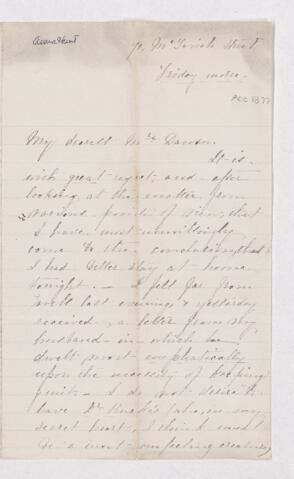 Anna Hunt
Friday morn.
DEC 1877
My dearest Mrs. Dawson.
It is
with great regret, and after
looking at the matter from
various points of view, that
I have most unwillingly
come to the conclusion, that
I had better stay at home
tonight. — I felt far from
well last evening, & yesterday
received, a letter from my
husband in which he
dwelt most emphatically
upon the necessity of keeping
quiet. — I do not desire to
have Dr. talk, in my
secret heart. I think most